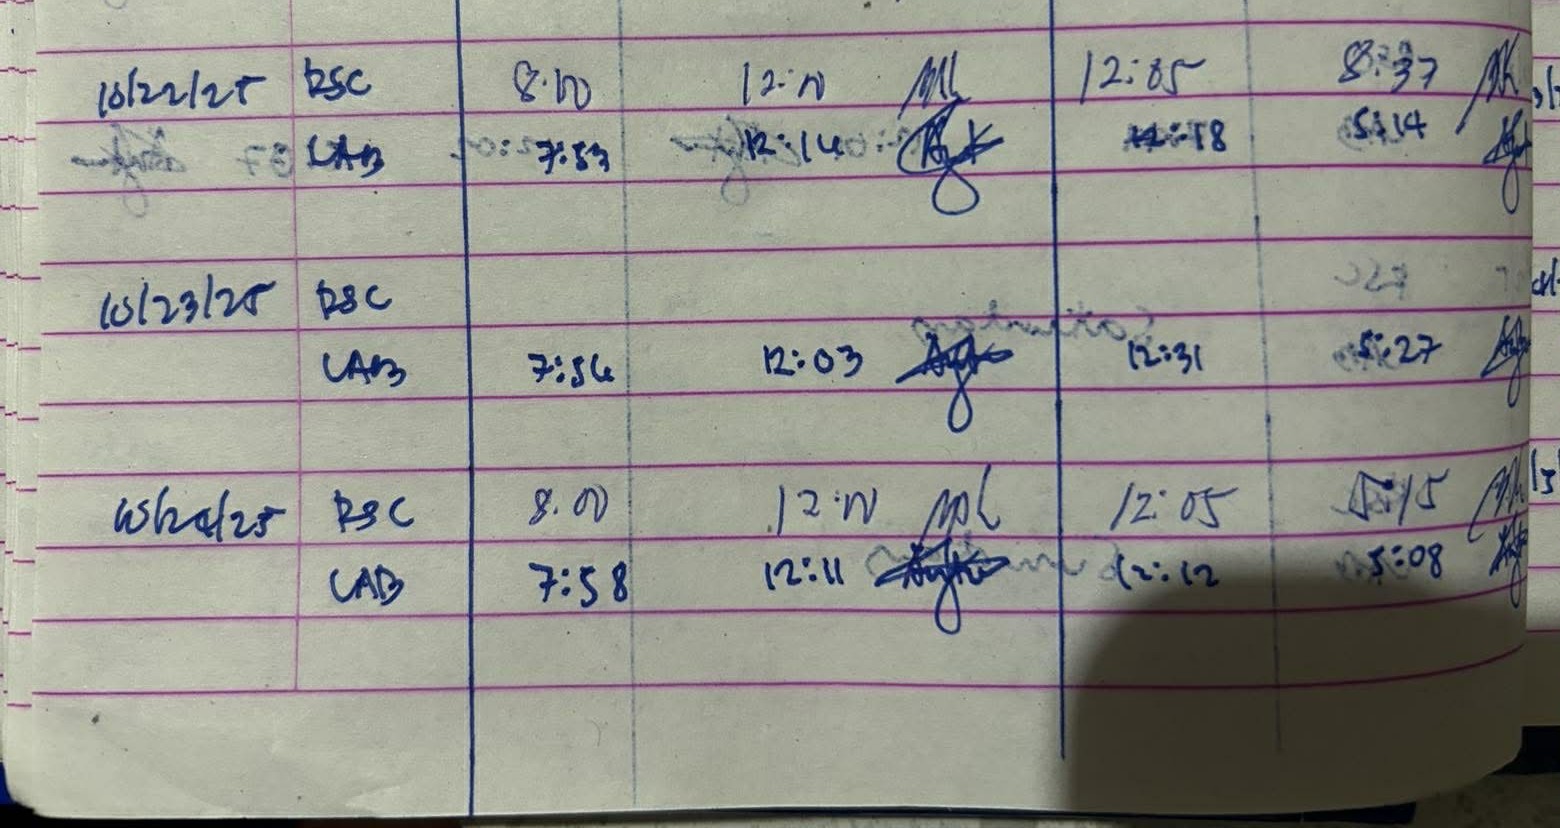 10/22/25 RSC 8:00 12:00 12:05 8:37
LAB 7:53 12:14 5:14
10/23/25 RSC
LAB 7:54 12:03 12:31 5:27
10/24/25 RSC 8:00 12:00 12:05 5:15
LAB 7:58 12:11 12:12 5:08